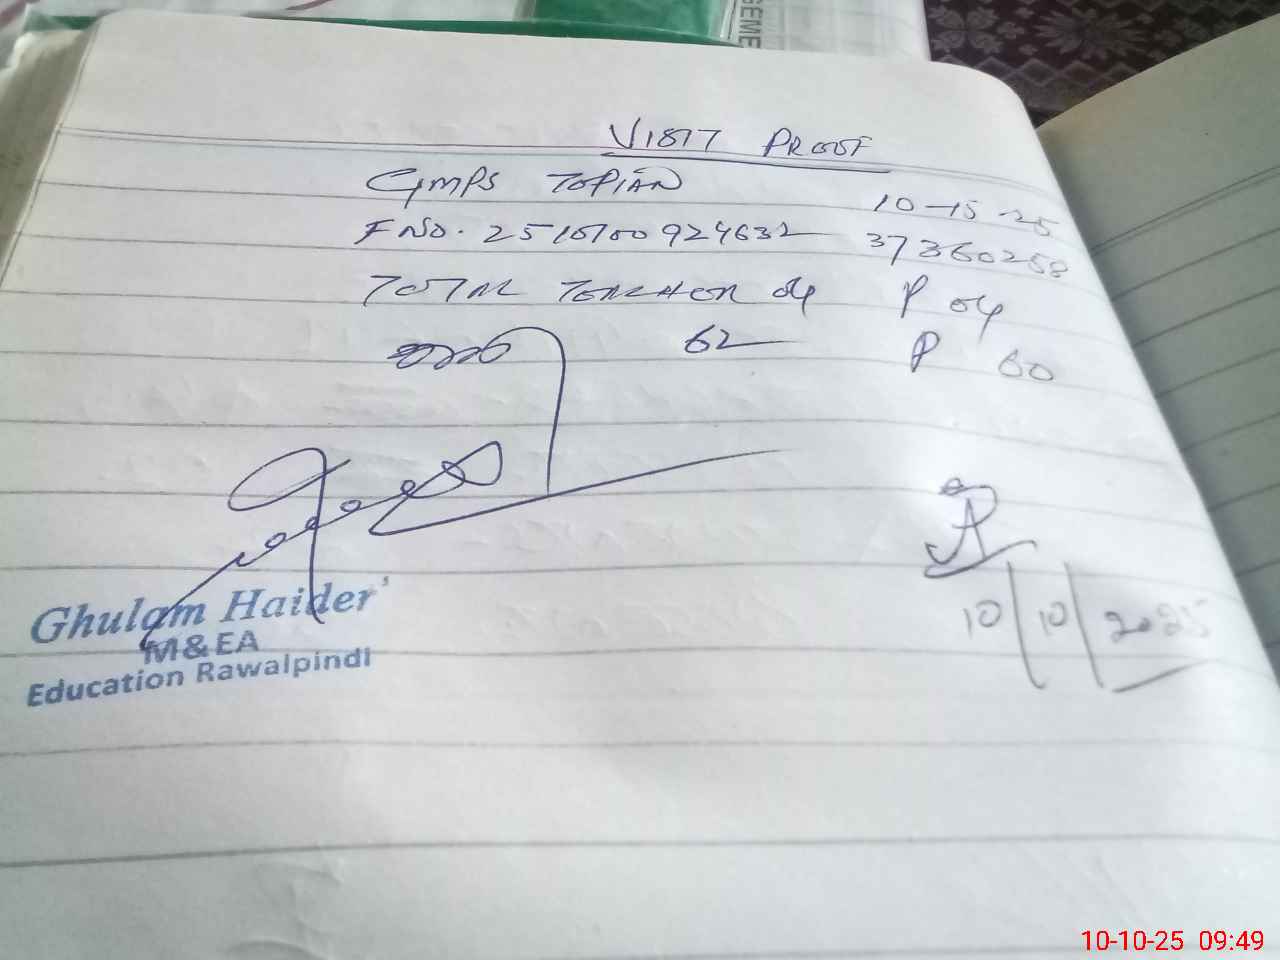 GEME
VISIT PROOF
GMPS TOPIAN 10-15-25
F NO. 2510100924632 37360258
TOTAL TEACHER 04 P 04
62 P 60
Ghulam Haider
M&EA
Education Rawalpindi
10/10/2025
10-10-25 09:49